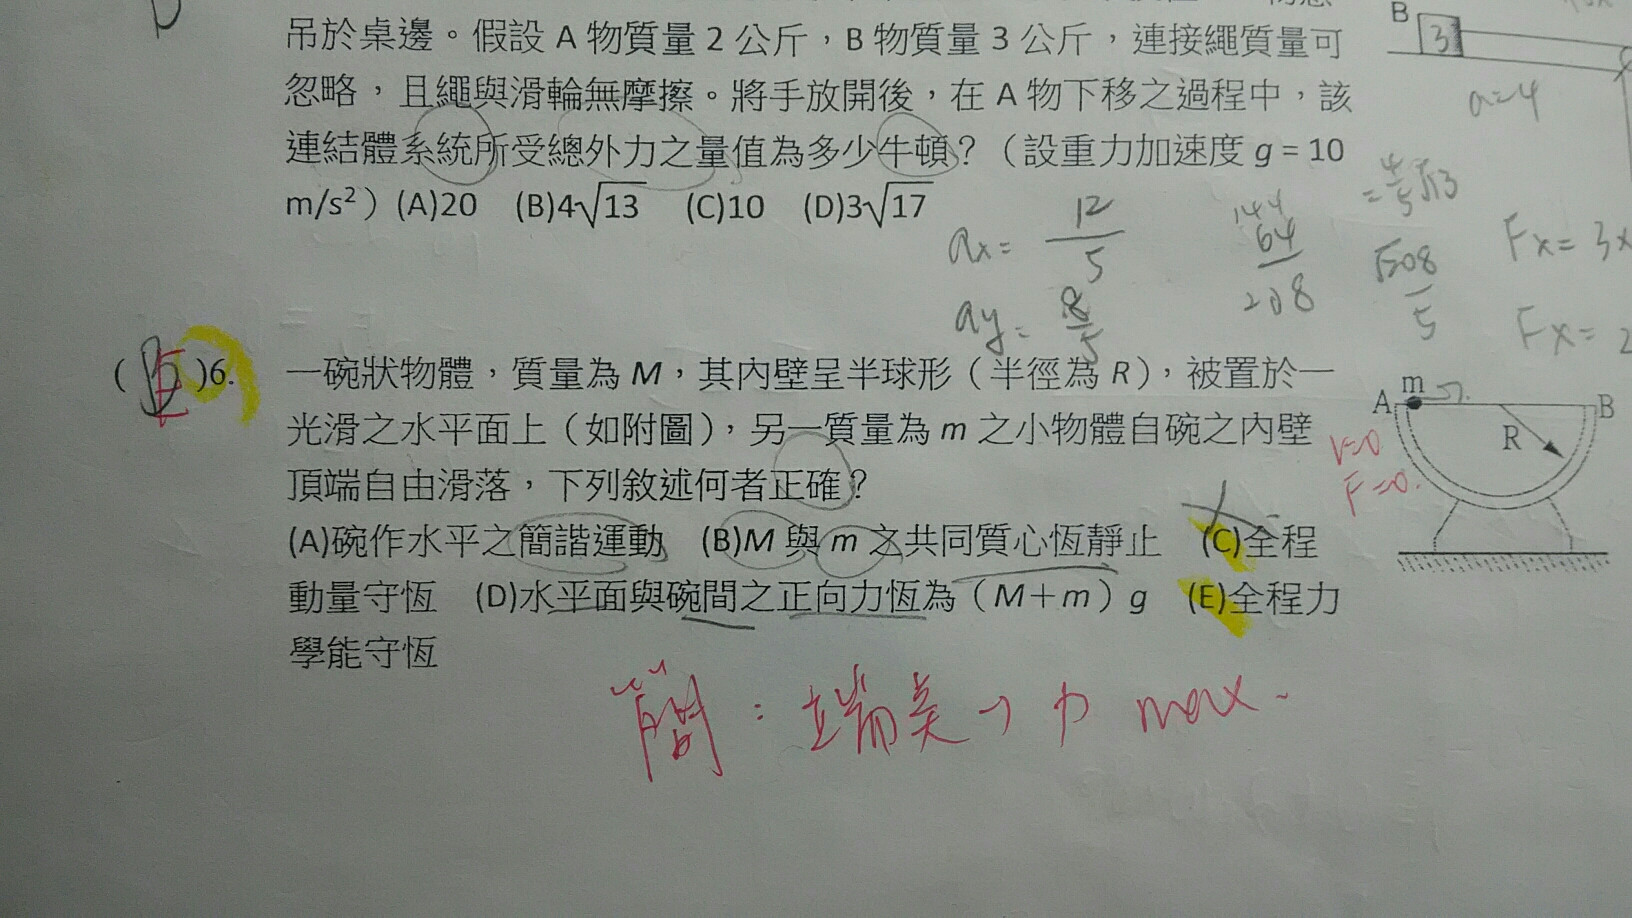 吊於桌邊。假設 A 物質量 2 公斤，B 物質量 3 公斤，連接繩質量可
忽略，且繩與滑輪無摩擦。將手放開後，在 A 物下移之過程中，該
連結體系統所受總外力之量值為多少牛頓？（設重力加速度 g = 10
m/s²）(A)20 (B)4√13 (C)10 (D)3√17
B
3
a=4
ax= 12/5
144
64
208
=4/5√13
√208/5
Fx= 3x
ay= 8/5
Fx= 2
( E )6. 一碗狀物體，質量為 M，其內壁呈半球形（半徑為 R），被置於一
光滑之水平面上（如附圖），另一質量為 m 之小物體自碗之內壁
頂端自由滑落，下列敘述何者正確？
(A)碗作水平之簡諧運動 (B)M 與 m 之共同質心恆靜止 (C)全程
動量守恆 (D)水平面與碗間之正向力恆為（M＋m）g (E)全程力
學能守恆
m
A
B
R
V=0
F=0.
簡：端點→力 max.